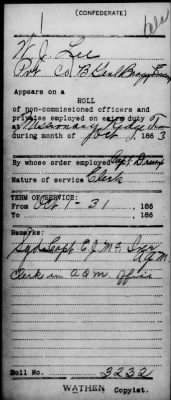 (CONFEDERATE)
W J Lee
Pvt Co B Genl Braggs
Appears on a
ROLL
of non-commissioned officers and
privates employed on extra duty
at Missionary Ridge Tenn
during month of Oct, 1863
By whose order employed Capt
Nature of service Clerk
TERM OF SERVICE:
From Oct 1-31, 186
To , 186
Remarks:
Sgd Capt E. J. Mc Iver
A.Q.M.
Clerk in A.Q.M. Office
Roll No. 3232
WATHEN
Copyist.